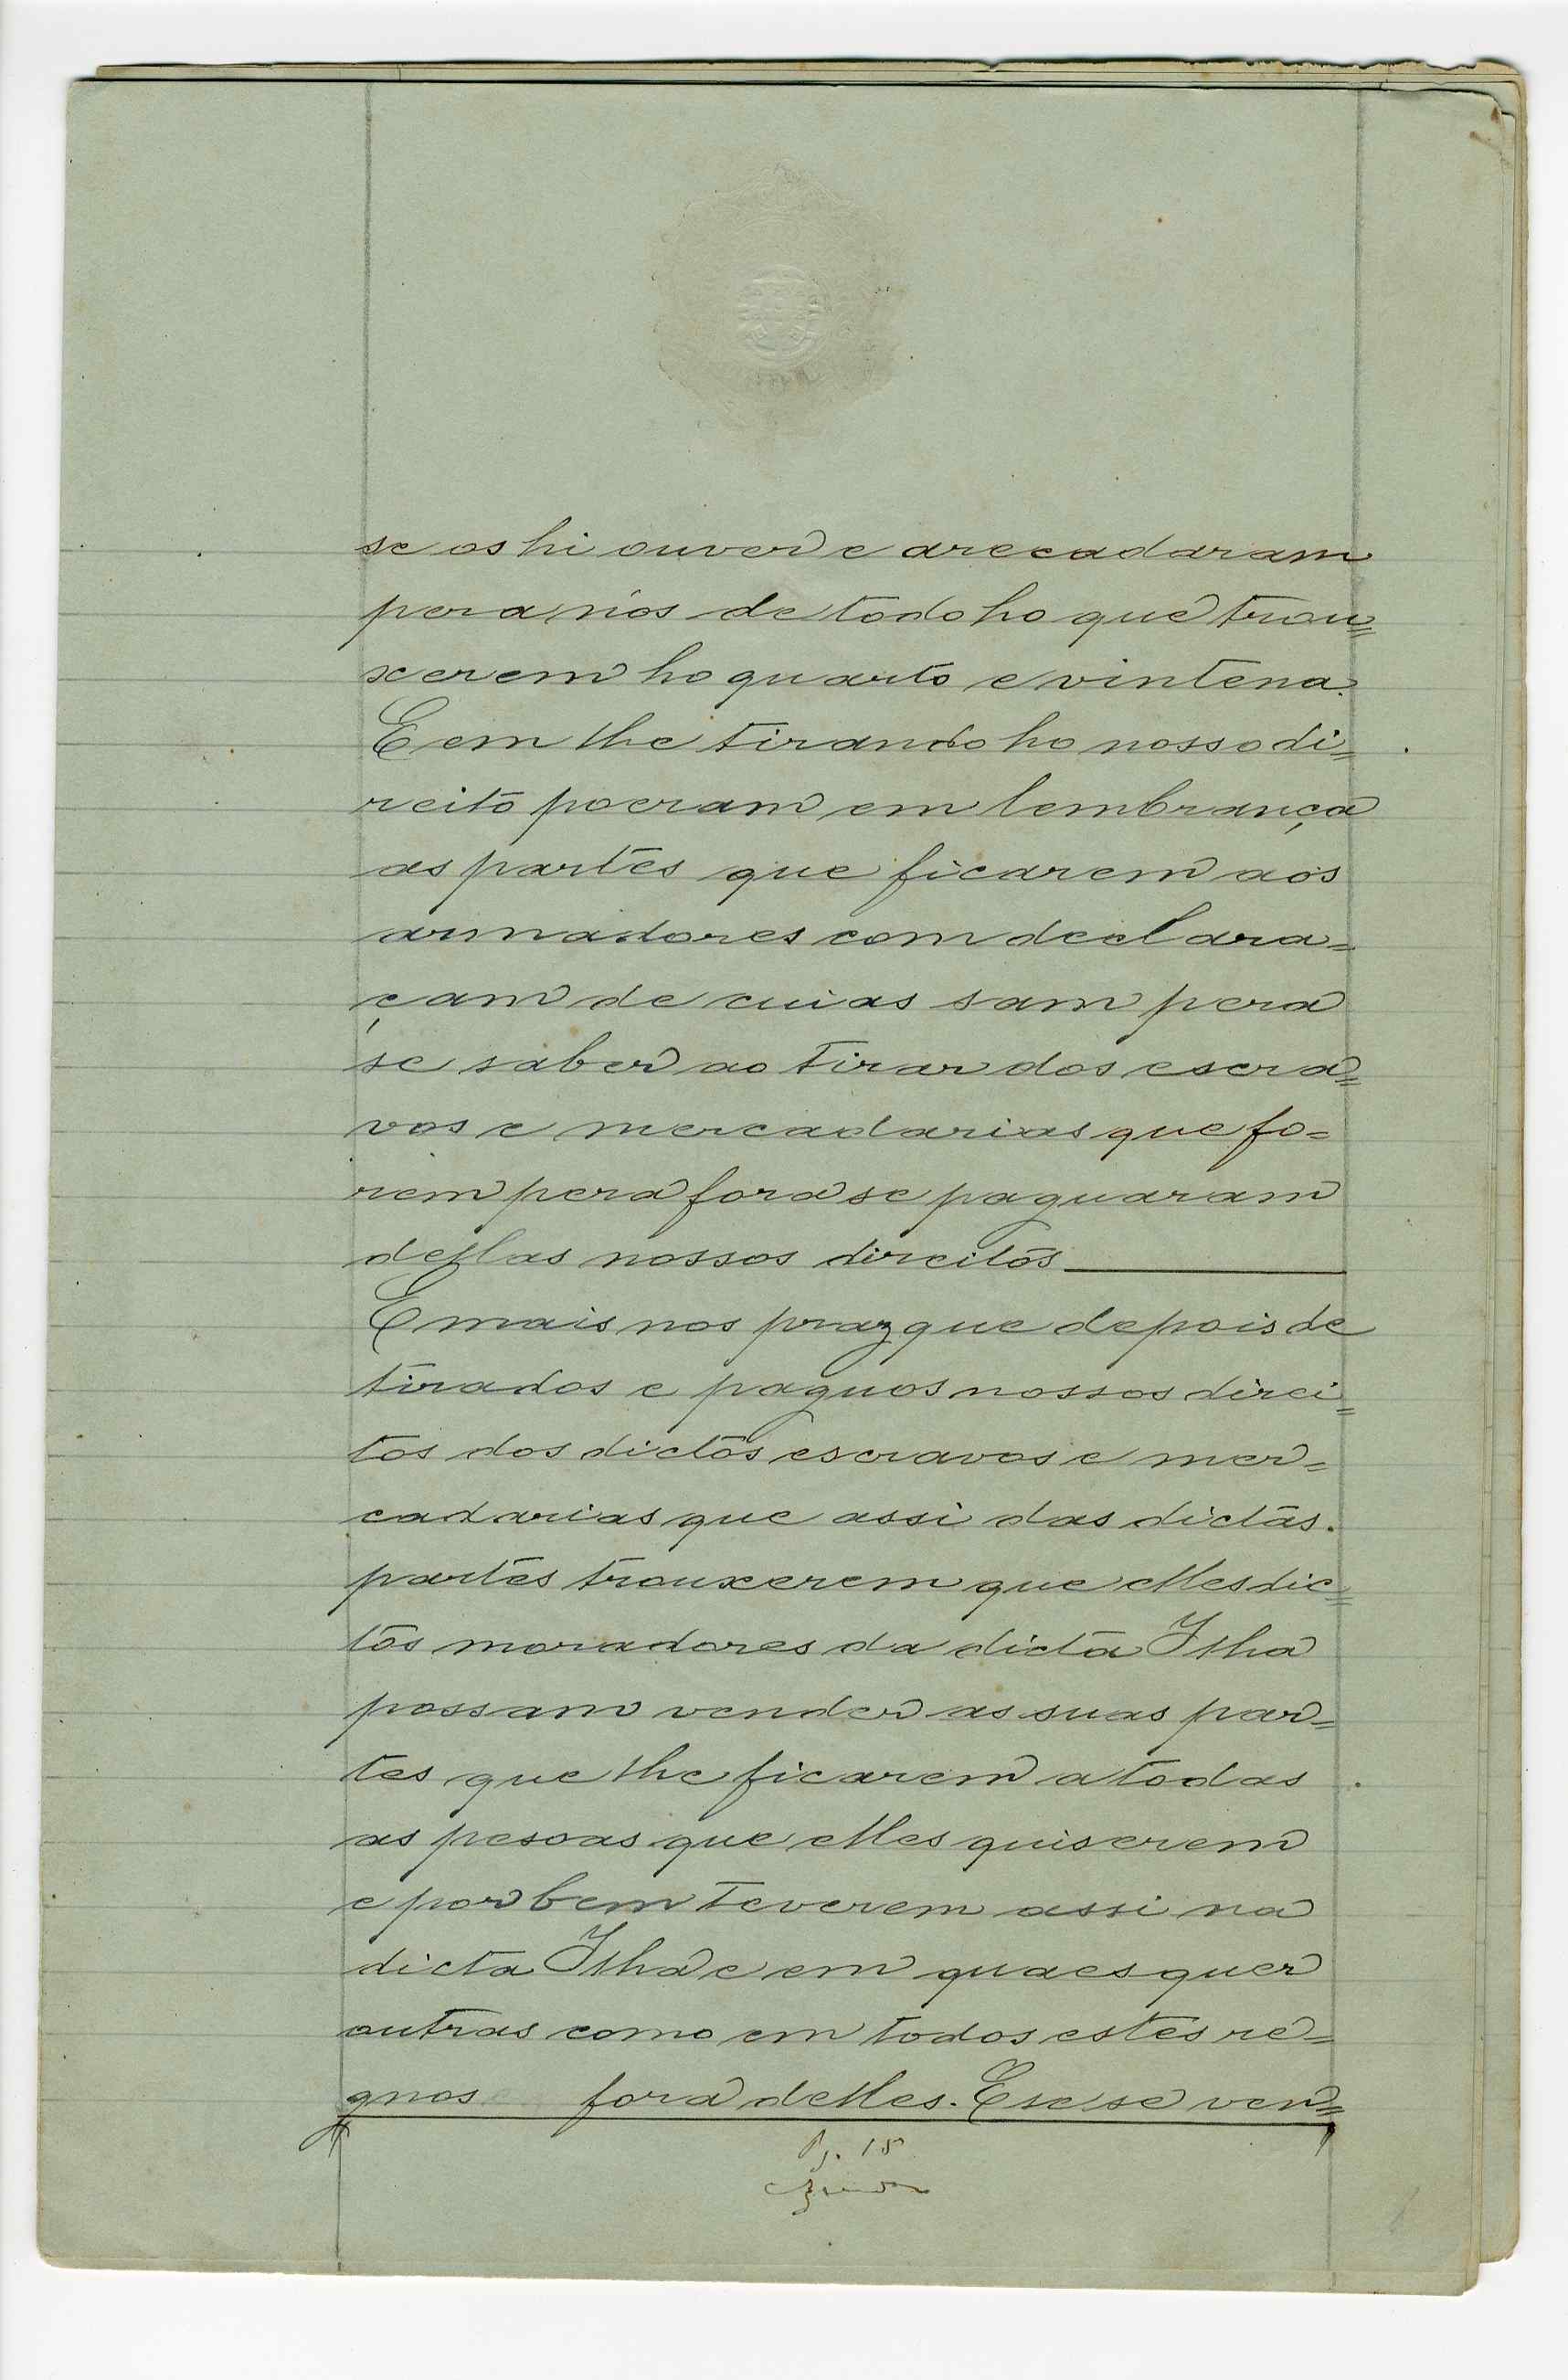 se os hi ouver e arecadaram
pera nós de todo ho que trou=
xerem ho quarto e vintena.
E em lhe tirando ho nosso di=
reito poeram em lembrança
as partes que ficarem aos
armadores com declara=
çam de cuias sam pera
se saber ao tirar dos escra=
vos e mercadarias que fo=
rem pera fora se paguaram
dellas nossos direitos
E mais nos praz que depois de
tirados e paguos nossos direi=
tos dos dictos escravos e mer=
cadarias que assi das dictas.
partes trouxerem que elles dic=
tos moradores da dicta Ilha
possam vender as suas par=
tes que lhe ficarem a todas
as pesoas que elles quiserem
e por bem teverem assi na
dicta Ilha e em quaesquer
outras como em todos estes re=
gnos fora delles. E se se ven=
Pg. 15